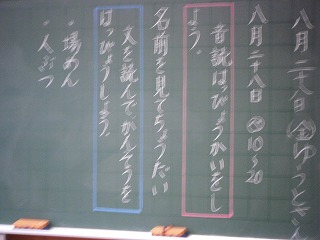 八月二十八日 ㊎ ゆうとさん
八月二十八日 10〜20
音読はっぴょうかいをし
よう。
名前を見てちょうだい
文を読んで、かんそうを
はっぴょうしよう。
・場めん
・人ぶつ